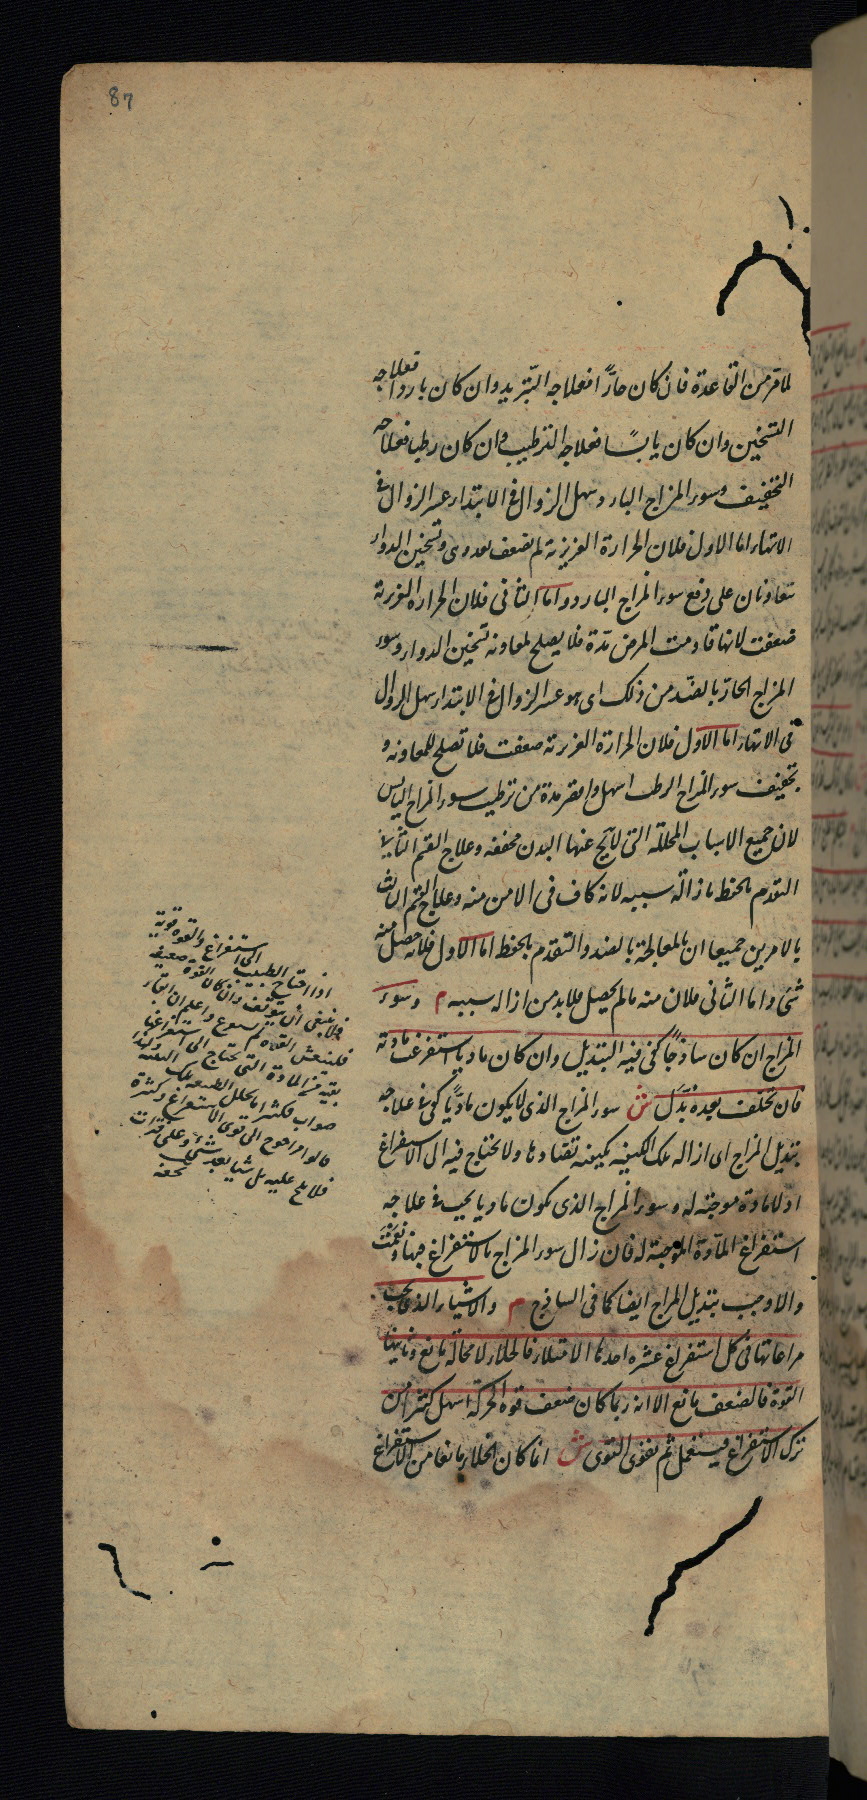 87
لما مر من القاعدة فان كان حارًّا فعلاجه التبريد وان كان باردا فعلاجه
التسخين وان كان يابسًا فعلاجه الترطيب وان كان رطبا فعلاجه
التجفيف وسوء المزاج البارد سهل الزوال فى الابتداء عسر الزوال فى
الانتهاء اما الاول فلان الحرارة الغريزية لم تضعف بعد وهى وتسخين الدواء
تتعاونان على دفع سوء المزاج البارد واما الثانى فلان الحرارة الغريزية
ضعفت لانها قاومت المرض مدة فلا يصلح لمعاونة تسخين الدواء وسوء
المزاج الحار بالضد من ذلك اى هو عسر الزوال فى الابتداء سهل الزوال
فى الانتهاء اما الاول فلان الحرارة الغريزية ضعفت فلا تصلح للمعاونة و
تجفيف سوء المزاج الرطب اسهل واقصر مدة من ترطيب سوء المزاج اليابس
لان جميع الاسباب المحللة التى لا عنها البدن مجففة وعلاج القسم الثانى
التقدم بالحفظ بازالة سببه لانه كاف فى الامن منه وعلاج القسم الثالث
بالامرين جميعا اى بالمعالجة بالضد والتقدم بالحفظ اما الاول فلانه حصل منه
شئ واما الثانى فلان منه ما لم يحصل فلابد من ازالة سببه م وسوء
المزاج ان كان ساذجًا كفى فيه التبديل وان كان ماديا استفرغت مادته
فان تخلف بعده بدّل ش سوء المزاج الذى لا يكون ماديًّا كفى فى علاجه
تبديل المزاج اى ازالة تلك الكيفية بكيفية تضادها ولا يحتاج فيه الى الاستفراغ
اذ لا مادة موجبة له وسوء المزاج الذى يكون ماديا يجب فى علاجه
استفراغ المادة الموجبة له فان زال سوء المزاج بالاستفراغ فبها ونعمت
والا وجب تبديل المزاج ايضا كما فى الساذج م والاشياء الذى يجب
مراعاتها فى كل استفراغ عشرة احدها الامتلاء فالخلاء لا محالة مانع وثانيها
القوة فالضعف مانع الا انه ربما كان ضعف قوة الحركة اسهل كثيرا من
ترك الاستفراغ فيستعمل ثم نقوى القوى ش انما كان الخلاء مانعا من الاستفراغ
اذا احتاج الطبيب الى استفراغ والقوة قوية
فلا ينبغى ان يتوقف وان كان القوة ضعيفة
فلينعش القوة ثم واعلم ان ابقاء
بقية من المادة التى تحتاج الى استفراغها